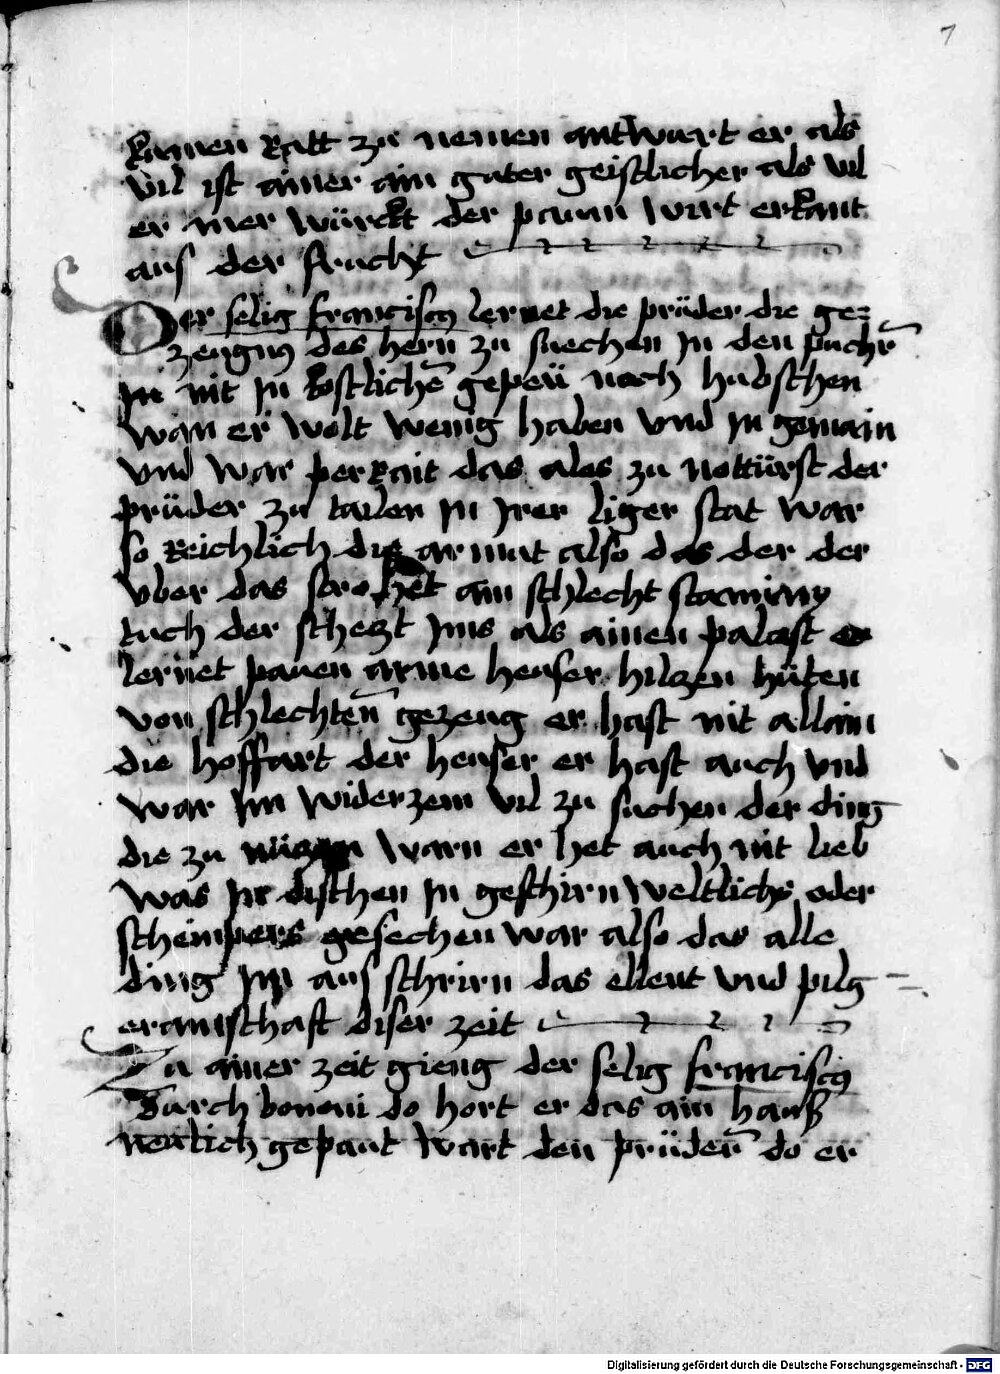 7
kamen Ratt zu nemen antwurt er als
vil ist ainer ain guter geistlicher als vil
er mer würckt der paum wirt erkant
aus der frucht
Der selig franciscus lernet die prüder die ge=
zeugnus des hern̄ zu suechen In den puchr̄
In nit In kostlichē gepeü noch hubschen
wan er wolt wenig haben vnd In gemain
vnd war perkait das ales zu nottürft der
prüder zu tailen In Irer liger stat war
so Reichlich die armut also das der der
vber das stro het ain schlecht
tuch der schetzt Ims als ainen palast er
lernet pauen arme heuser hilzen hüten
von schlechten̄ gezeug er hast nit allain
die hoffart der heuser er hast auch vnd
war Im widerzem vil zu suchen der ding
die zu warn er het auch nit lieb
was In dischen In geschirn weltlichs oder
gesechen war also das alle
ding Im aus schrirn das ellent vnd pilg
eramschaft diser zeit
Zu ainer zeit gieng der selig franciscus
Durch bononi do hort er das ain hauß
neulich gepaut wart den prüdern̄ do er
Digitalisierung gefördert durch die Deutsche Forschungsgemeinschaft - DFG